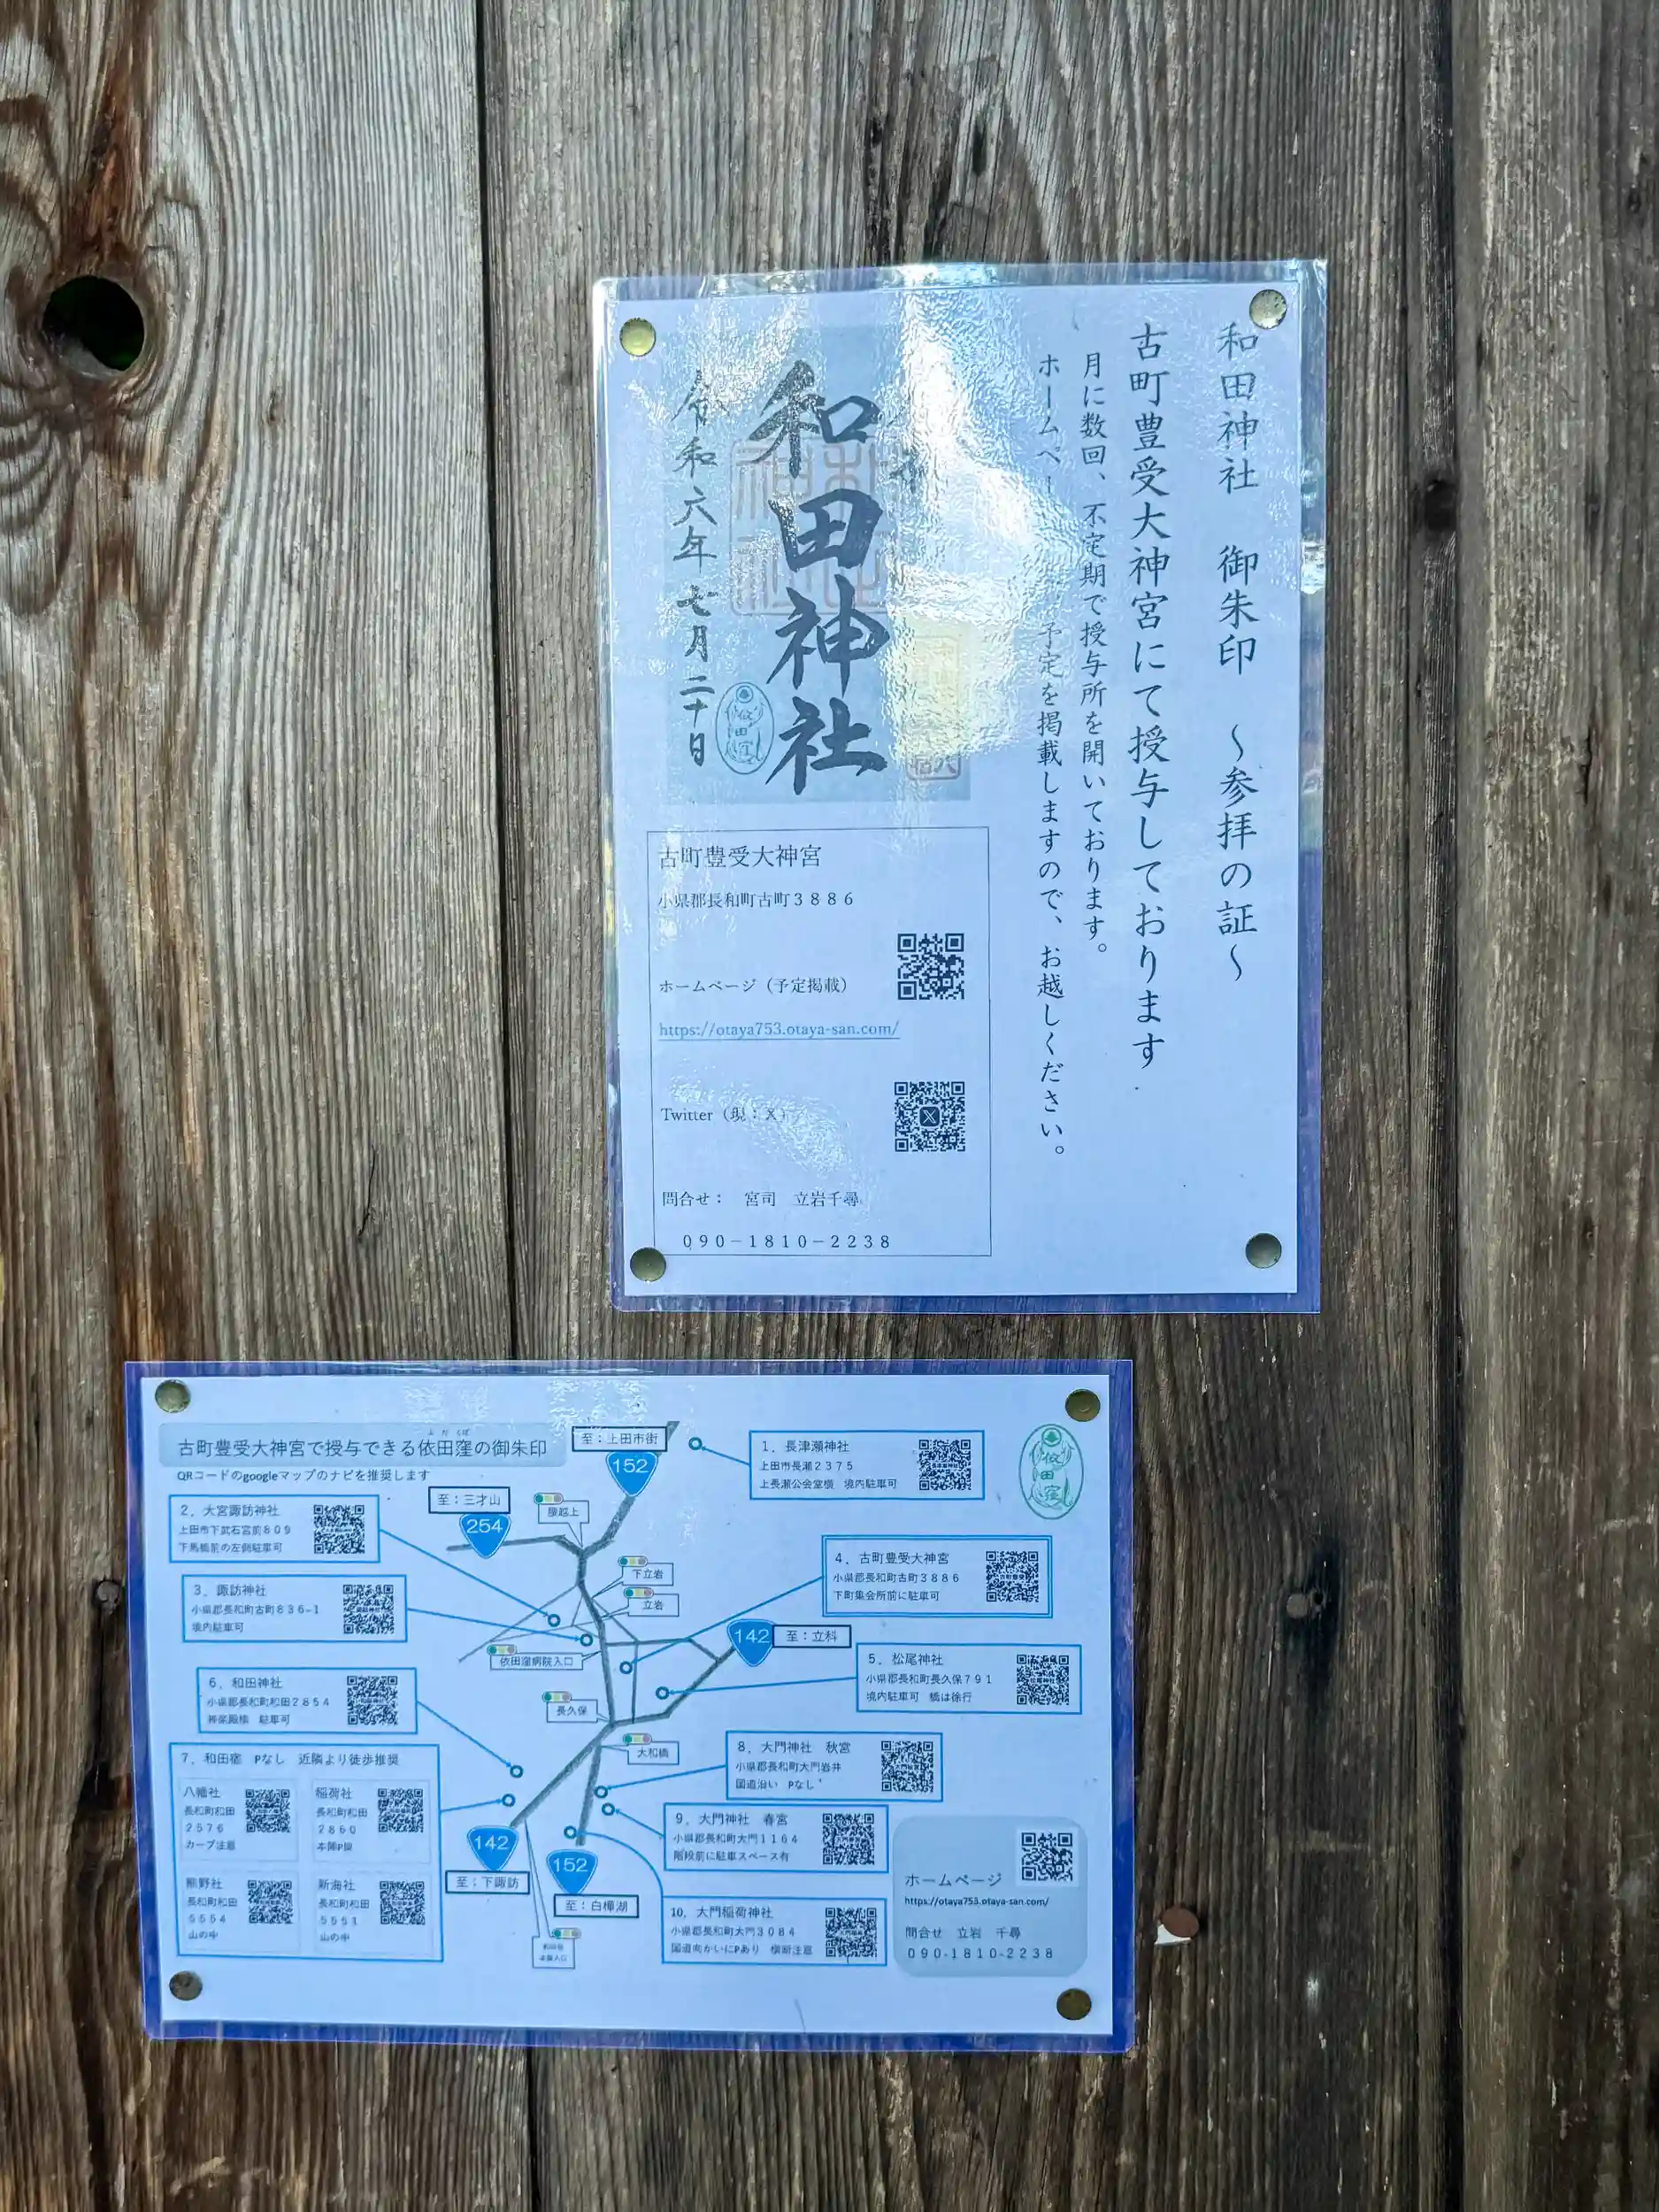 和田神社　御朱印　～参拝の証～
古町豊受大神宮にて授与しております
月に数回、不定期で授与所を開いております。
ホームペー　予定を掲載しますので、お越しください。
和田神社
令和六年七月二十日
依田窪
古町豊受大神宮
小県郡長和町古町3886
ホームページ（予定掲載）
https://otaya753.otaya-san.com/
Twitter（現：X）
問合せ：　宮司　立岩千尋
090-1810-2238
古町豊受大神宮で授与できる依田窪の御朱印
QRコードのgoogleマップのナビを推奨します
至：上田市街
152
1．長津瀬神社
上田市長瀬2375
上長瀬公会堂横　境内駐車可
依田窪
2．大宮諏訪神社
上田市下武石宮前809
下馬橋前の左側駐車可
至：三才山
254
腰越上
下立岩
立岩
3．諏訪神社
小県郡長和町古町836-1
境内駐車可
4．古町豊受大神宮
小県郡長和町古町3886
下町集会所前に駐車可
142
至：立科
依田窪病院入口
5．松尾神社
小県郡長和町長久保791
境内駐車可　橋は徐行
長久保
大和橋
6．和田神社
小県郡長和町和田2854
神楽殿横　駐車可
7．和田宿　Pなし　近隣より徒歩推奨
八幡社
長和町和田
2576
カーブ注意
稲荷社
長和町和田
2860
本陣P奥
熊野社
長和町和田
5554
山の中
新海社
長和町和田
5551
山の中
8．大門神社　秋宮
小県郡長和町大門岩井
国道沿い　Pなし
9．大門神社　春宮
小県郡長和町大門1164
階段前に駐車スペース有
10．大門稲荷神社
小県郡長和町大門3084
国道向かいにPあり　横断注意
142
至：下諏訪
152
至：白樺湖
ホームページ
https://otaya753.otaya-san.com/
問合せ　立岩　千尋
090-1810-2238